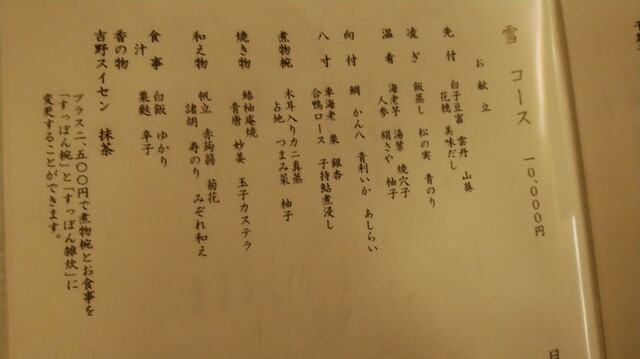 雪 コース 一〇,〇〇〇円
お献立
先付 白子豆富 雲丹 山葵
花穂 美味だし
凌ぎ 飯蒸し 松の実 青のり
温肴 海老芋 湯葉 焼穴子
人参 絹さや 柚子
向付 鯛 かん八 青利いか あしらい
八寸 車海老 栗 銀杏
合鴨ロース 子持鮎煮浸し
煮物椀 木耳入りカニ真蒸
占地 つまみ菜 柚子
焼き物 鰆柚庵焼
青唐 妙美 玉子カステラ
和え物 帆立 赤蒟蒻 菊花
諸胡 寿のり みぞれ和え
食事 白飯 ゆかり
汁 粟麩 辛子
香の物
吉野スイセン 抹茶
プラス二、五〇〇円で煮物椀とお食事を
「すっぽん椀」と「すっぽん雑炊」に
変更することができます。